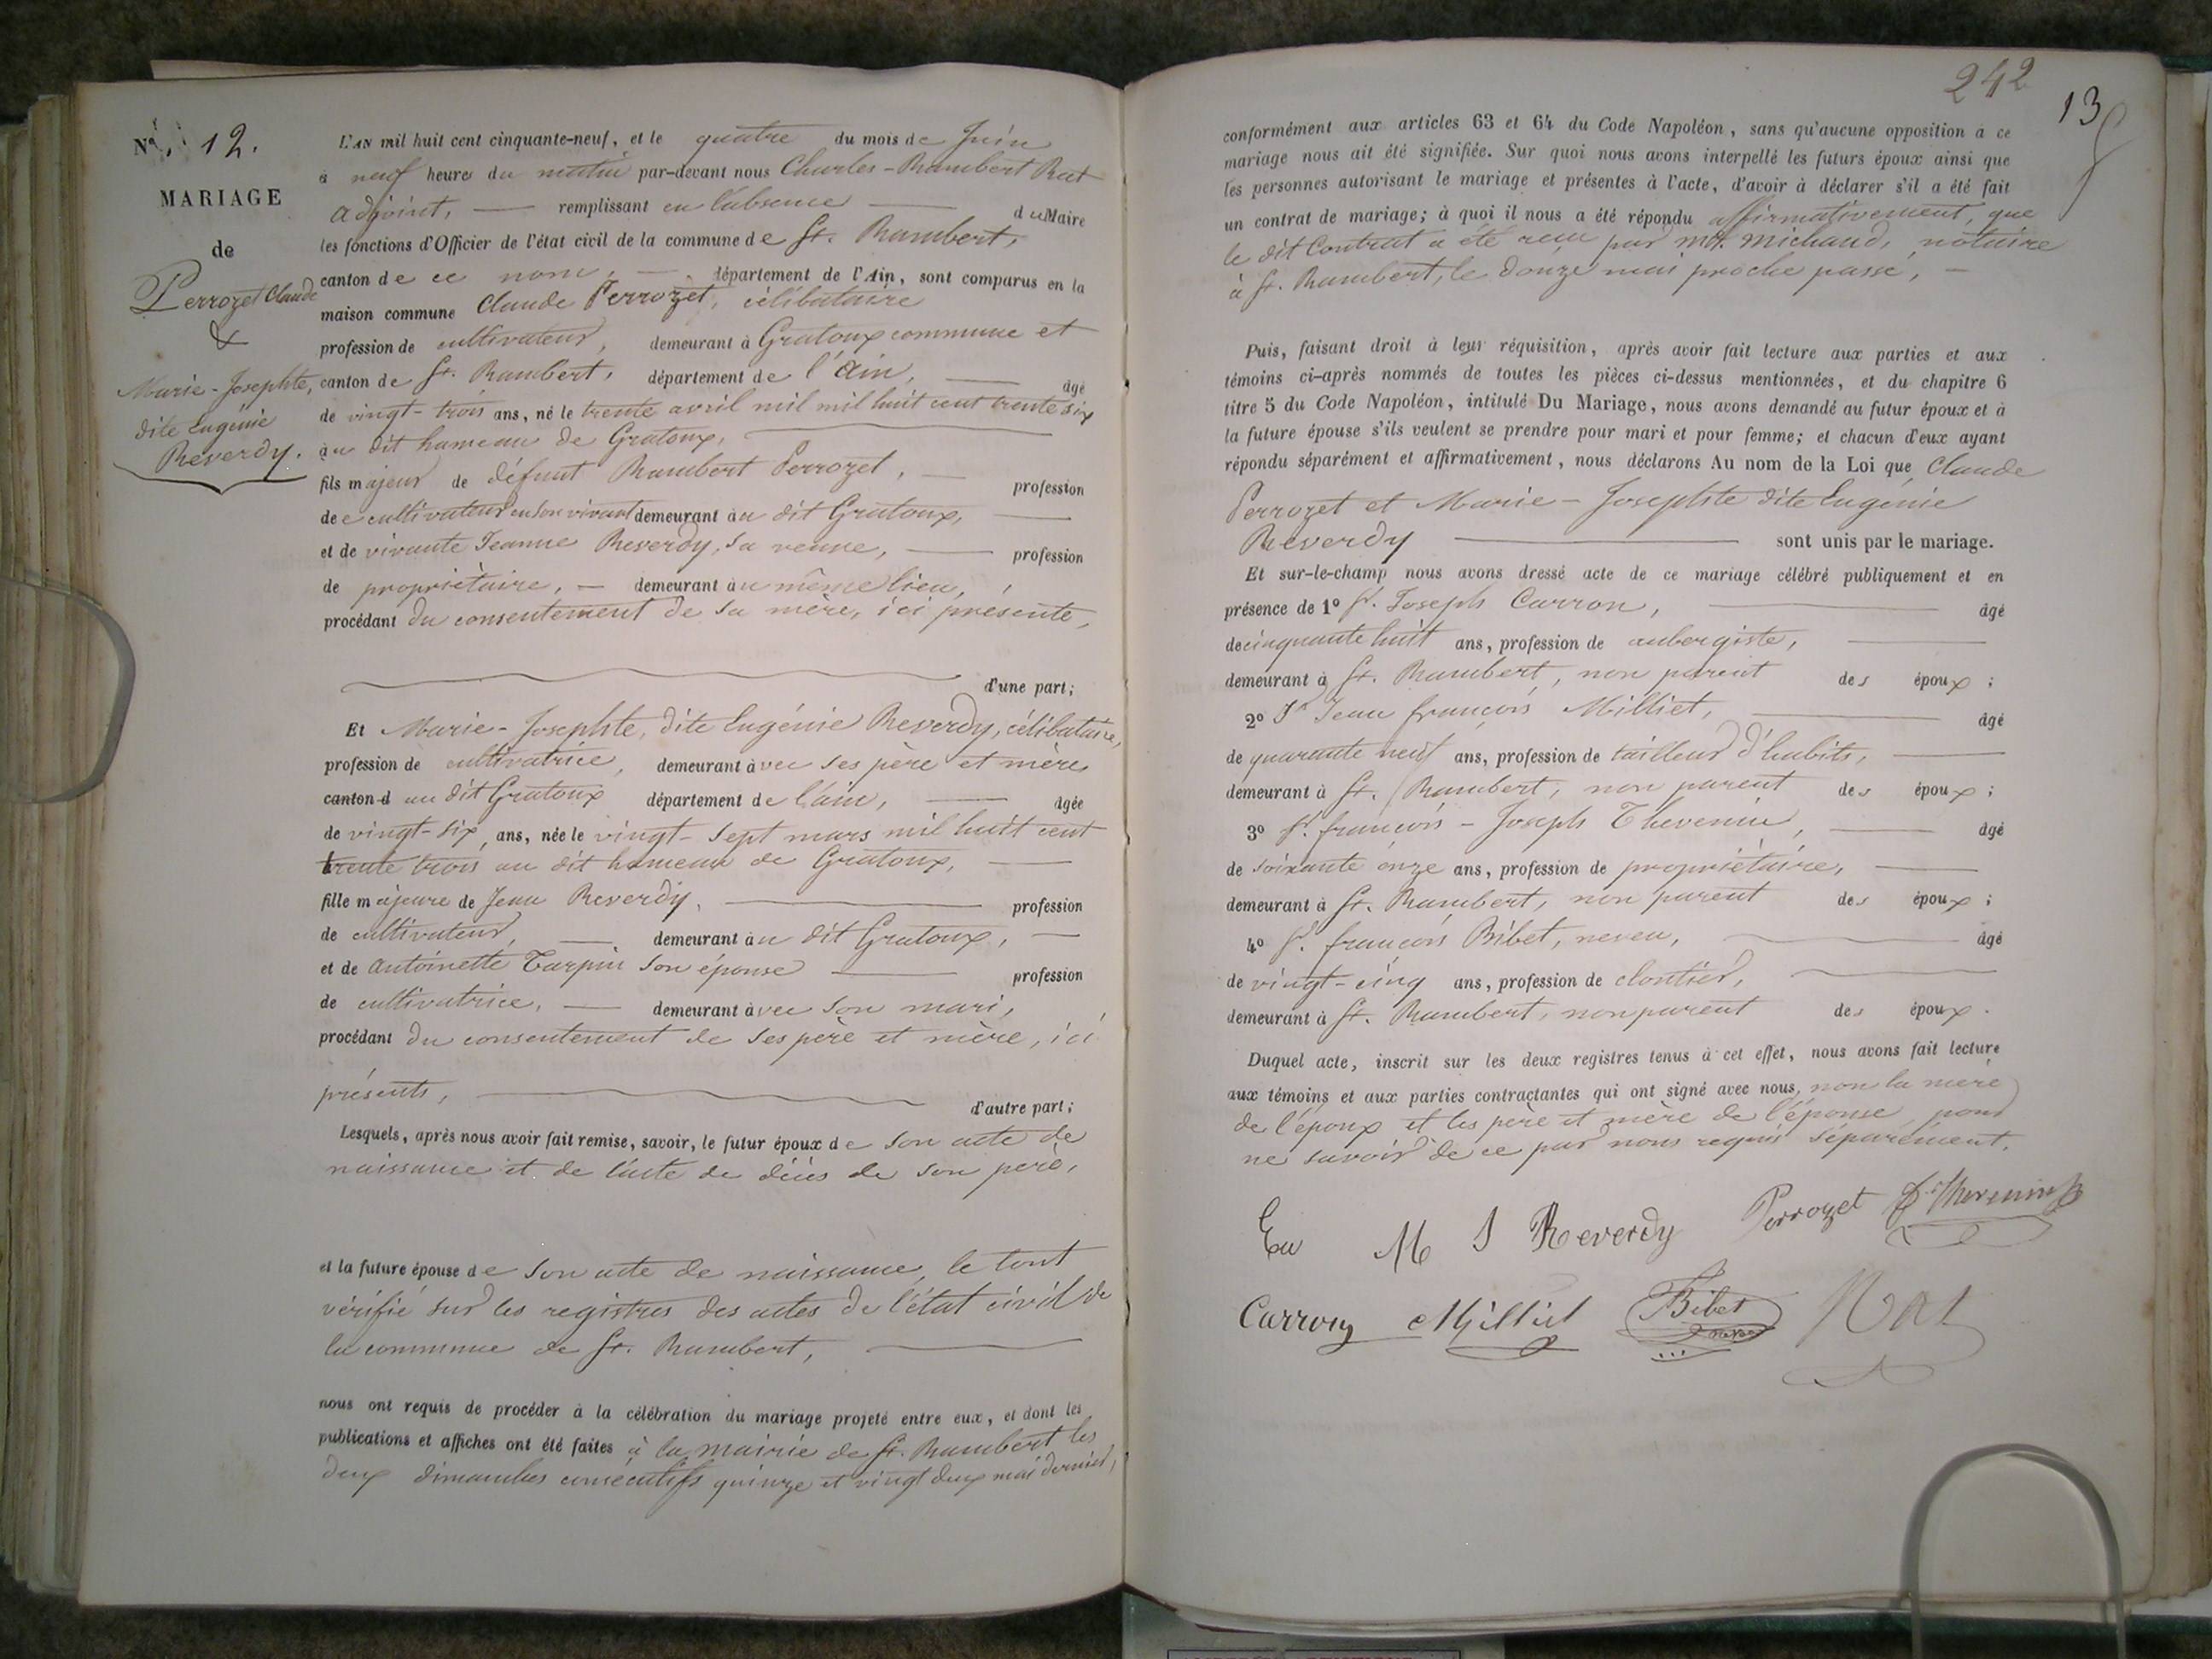 N° 12.
MARIAGE
de
Perrozet Claude
&
Marie-Josephte,
dite Eugénie
Reverdy.
L'AN mil huit cent cinquante-neuf, et le quatre du mois de Juin
à neuf heures du matin par-devant nous Charles-Rambert Rat
adjoint, remplissant en l'absence du Maire
les fonctions d'Officier de l'état civil de la commune de St. Rambert,
canton de ce nom, département de l'Ain, sont comparus en la
maison commune Claude Perrozet, célibataire
profession de cultivateur, demeurant à Gratoux commune et
canton de St. Rambert, département de l'Ain, âgé
de vingt-trois ans, né le trente avril mil mil huit cent trente six
au dit hameau de Gratoux,
fils majeur de défunt Rambert Perrozet, profession
de cultivateur en son vivant demeurant au dit Gratoux,
et de vivante Jeanne Reverdy, sa veuve, profession
de propriétaire, demeurant au même lieu,
procédant du consentement de sa mère, ici présente,
d'une part;
Et Marie-Josephte, dite Eugénie Reverdy, célibataire,
profession de cultivatrice, demeurant avec ses père et mère
canton d au dit Gratoux département de l'ain, âgée
de vingt-six ans, née le vingt-sept mars mil huit cent
trente trois au dit hameau de Gratoux,
fille majeure de Jean Reverdy, profession
de cultivateur, demeurant au dit Gratoux,
et de Antoinette Turpin son épouse profession
de cultivatrice, demeurant avec son mari,
procédant du consentement de ses père et mère, ici
présents,
d'autre part;
Lesquels, après nous avoir fait remise, savoir, le futur époux de son acte de
naissance et de l'acte de décès de son père,
et la future épouse de son acte de naissance, le tout
vérifié sur les registres des actes de l'état civil de
la commune de St. Rambert,
nous ont requis de procéder à la célébration du mariage projeté entre eux, et dont les
publications et affiches ont été faites à la mairie de St. Rambert les
deux dimanches consécutifs quinze et vingt deux mai dernier,
242
13
conformément aux articles 63 et 64 du Code Napoléon, sans qu'aucune opposition à ce
mariage nous ait été signifiée. Sur quoi nous avons interpellé les futurs époux ainsi que
les personnes autorisant le mariage et présentes à l'acte, d'avoir à déclarer s'il a été fait
un contrat de mariage; à quoi il nous a été répondu affirmativement, que
le dit Contrat a été reçu par Me. Michaud, notaire
à St. Rambert, le douze mai proche passé,
Puis, faisant droit à leur réquisition, après avoir fait lecture aux parties et aux
témoins ci-après nommés de toutes les pièces ci-dessus mentionnées, et du chapitre 6
titre 5 du Code Napoléon, intitulé Du Mariage, nous avons demandé au futur époux et à
la future épouse s'ils veulent se prendre pour mari et pour femme; et chacun d'eux ayant
répondu séparément et affirmativement, nous déclarons Au nom de la Loi que Claude
Perrozet et Marie-Josephte dite Eugénie
Reverdy sont unis par le mariage.
Et sur-le-champ nous avons dressé acte de ce mariage célébré publiquement et en
présence de 1° Sr. Joseph Carron, âgé
de cinquante huit ans, profession de aubergiste,
demeurant à St. Rambert, non parent des époux;
2° Sr Jean françois Milliet, âgé
de quarante neuf ans, profession de tailleur d'habits,
demeurant à St. Rambert, non parent des époux;
3° Sr. françois-Joseph Thevenin, âgé
de soixante onze ans, profession de propriétaire,
demeurant à St. Rambert, non parent des époux;
4° Sr. françois Bibet, neveu, âgé
de vingt-cinq ans, profession de cloutier,
demeurant à St. Rambert, non parent des époux.
Duquel acte, inscrit sur les deux registres tenus à cet effet, nous avons fait lecture
aux témoins et aux parties contractantes qui ont signé avec nous, non la mère
de l'époux et les père et mère de l'épouse, pour
ne savoir de ce par nous requis séparément.
Eu M J Reverdy Perrozet f. Thevenin
Carron Milliet Bibet neveu Rat